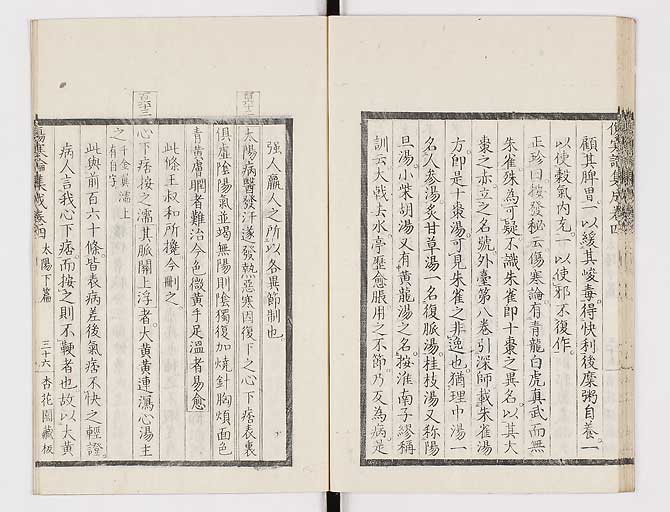 傷寒論集成卷四
顧其脾胃一以緩其峻毒得快利後糜粥自養一
以使穀氣內充一以使邪不復作
正珍曰按發秘云傷寒論有青龍白虎真武而無
朱雀殊為可疑不識朱雀即十棗之異名以其大
棗之赤立之名號外臺第八卷引深師載朱雀湯
方即是十棗湯可見朱雀之非逸也猶理中湯一
名人參湯炙甘草湯一名復脈湯桂枝湯又稱陽
旦湯小柴胡湯又有黃龍湯之名按淮南子繆稱
訓云大戟去水亭歷愈脹用之不節乃反為病是
強人羸人之所以各異節制也
百六十二
太陽病醫發汗遂發熱惡寒因復下之心下痞表裏
俱虛陰陽氣並竭無陽則陰獨復加燒針胸煩面色
青黃膚瞤者難治今色微黃手足溫者易愈
此條王叔和所攙今刪之
百六十三
心下痞按之濡其脈關上浮者大黃黃連瀉心湯主
之
千金翼濡上
有自字
此與前百六十條皆表病差後氣痞不快之輕證
病人言我心下痞而按之則不鞕者也故以大黃
傷寒論集成卷四
太陽下篇
三十六
杏花園藏板